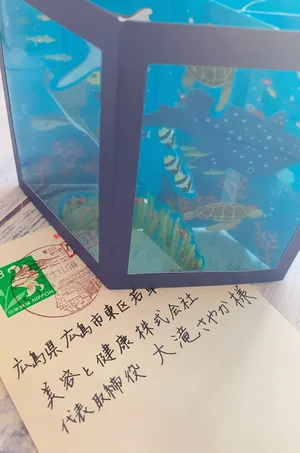 NIPPON
広島県広島市東区若草
美容と健康株式会社
代表取締役 大滝さやか様